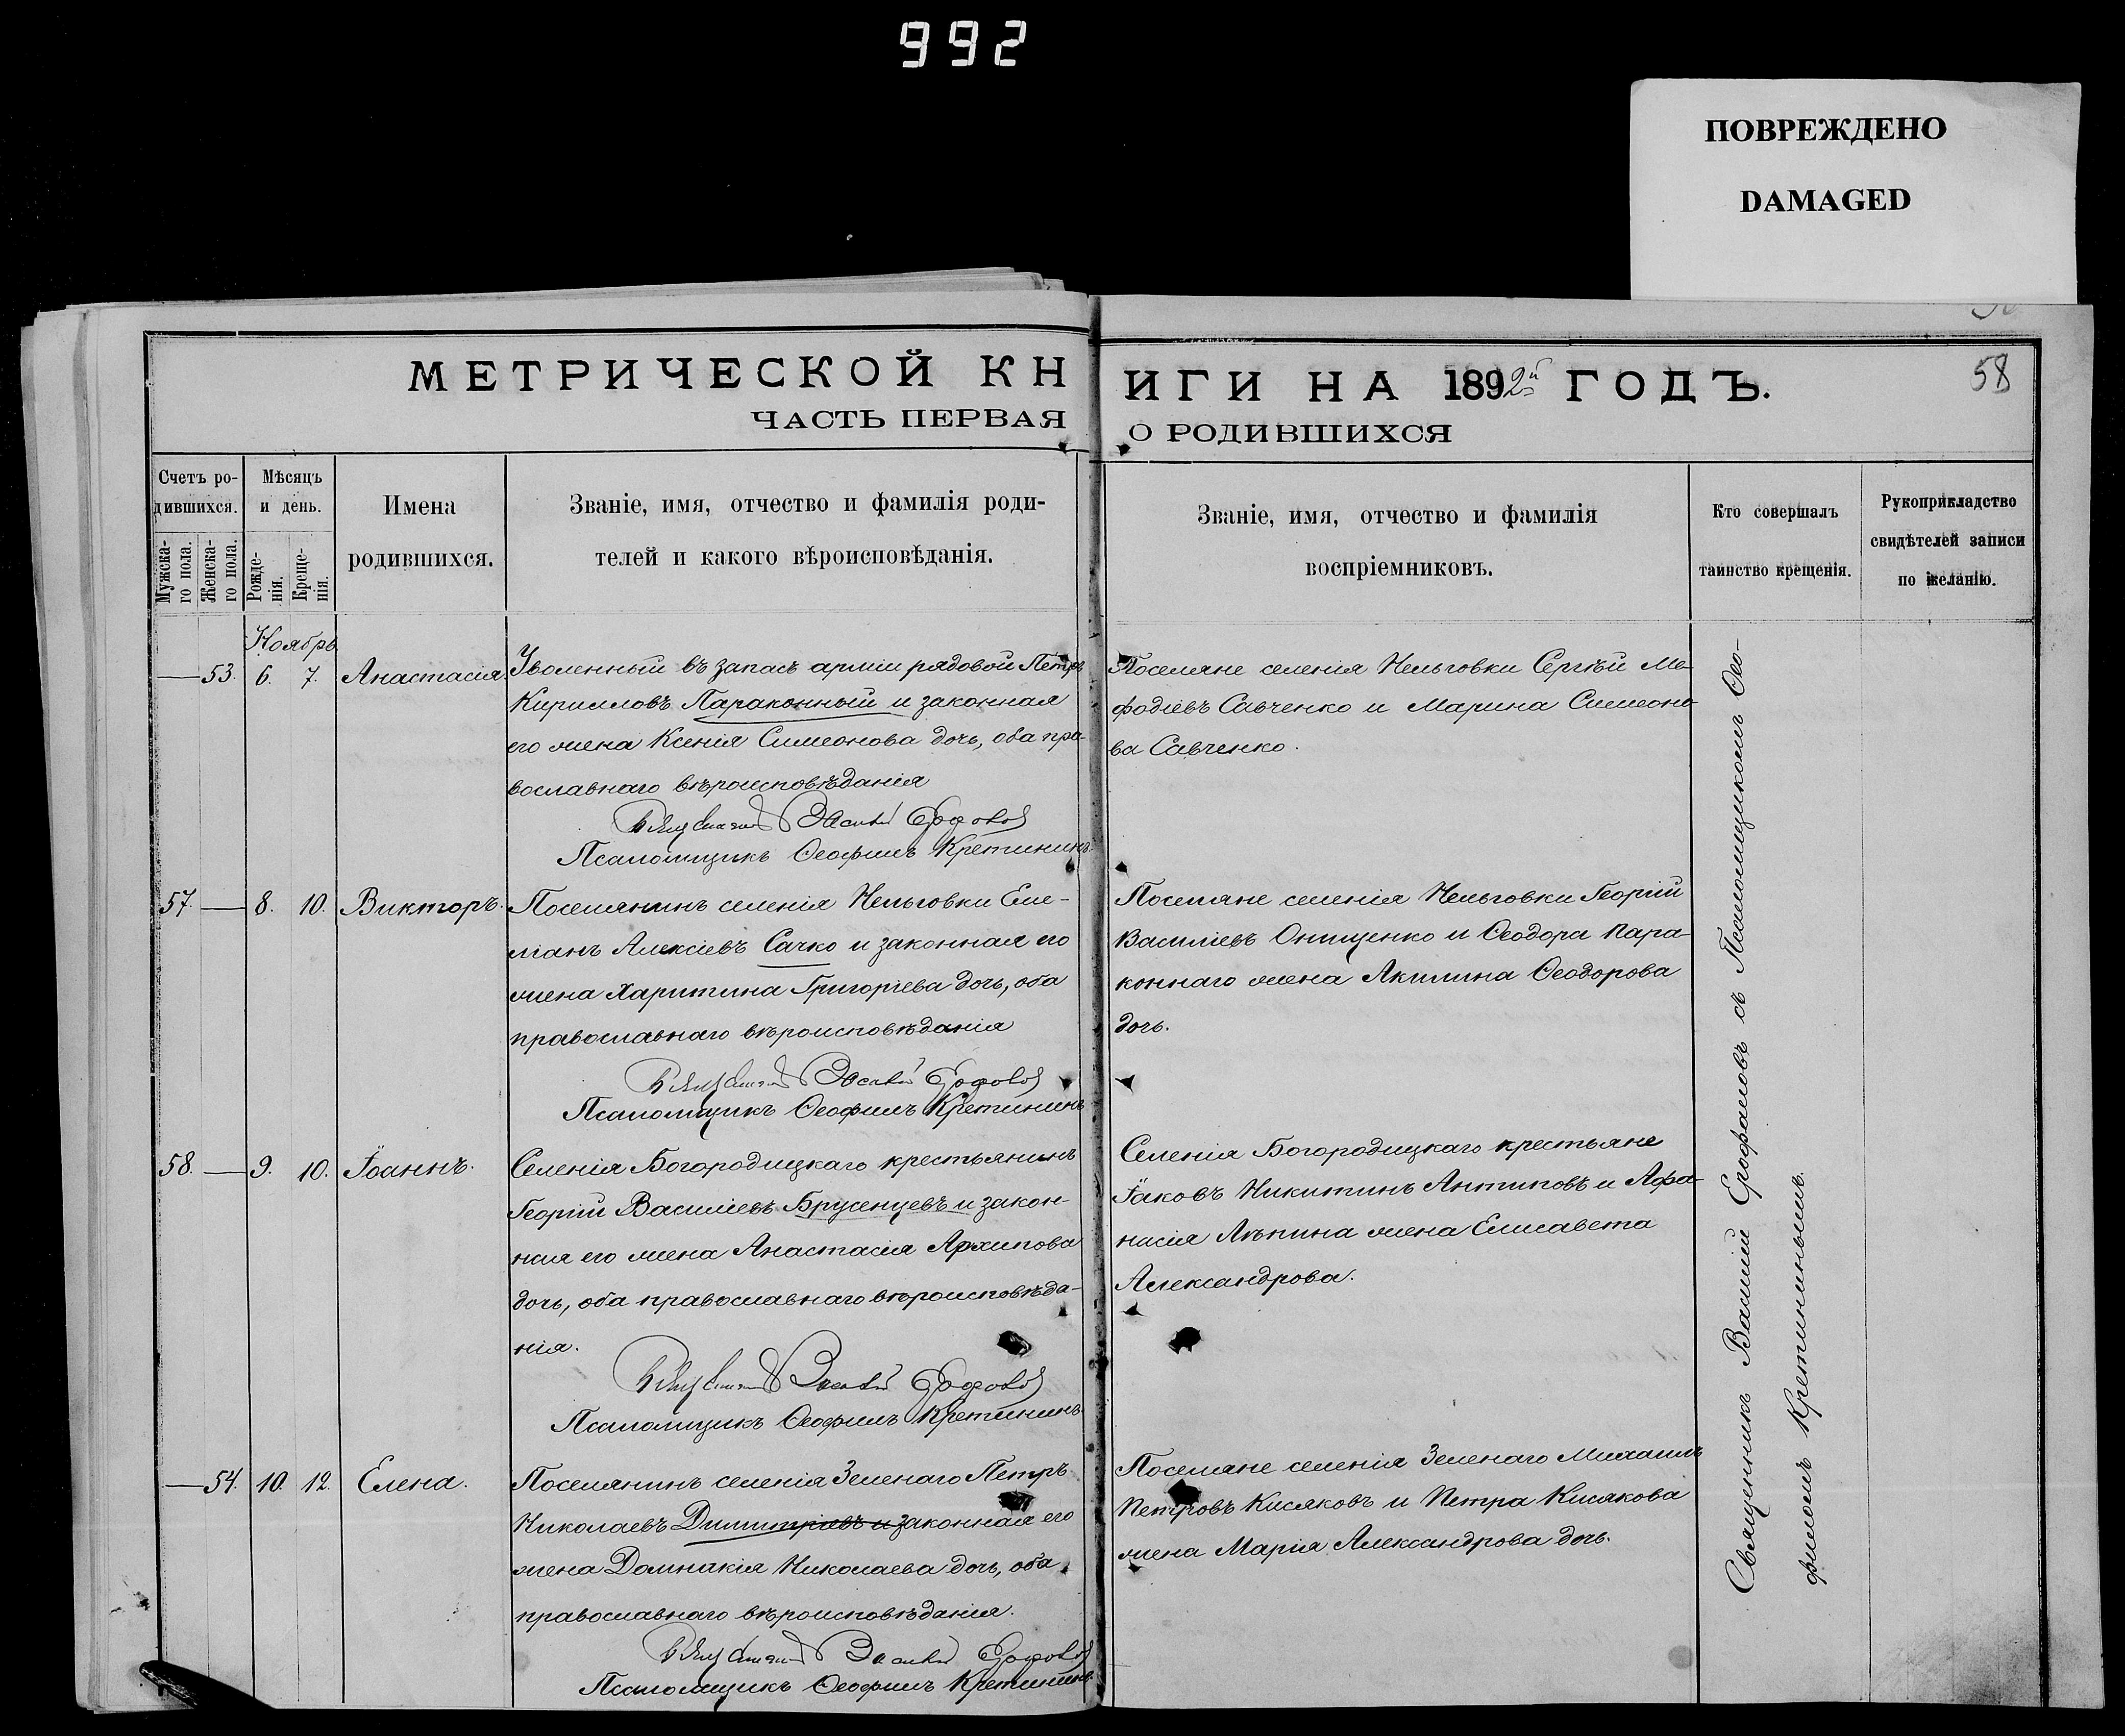 992
ПОВРЕЖДЕНО
DAMAGED
58
МЕТРИЧЕСКОЙ КНИГИ НА 1892й ГОДЪ.
ЧАСТЬ ПЕРВАЯ О РОДИВШИХСЯ
Счетъ ро-
дившихся.
Мужска-
го пола.
Женска-
го пола.
Мѣсяцъ
и день.
Рожде-
нія.
Креще-
нія.
Имена
родившихся.
Званіе, имя, отчество и фамилія роди-
телей и какого вѣроисповѣданія.
Званіе, имя, отчество и фамилія
воспріемниковъ.
Кто совершалъ
таинство крещенія.
Рукоприкладство
свидѣтелей записи
по желанію.
Ноябрь
— 53. 6. 7. Анастасія
Уволенный въ запасъ арміи рядовой Петръ
Кирилловъ Параконный и законная
его жена Ксенія Симеонова дочь, оба пра-
вославнаго вѣроисповѣданія
Псаломщикъ Ѳеофилъ Кретининъ.
Поселяне селенія Нельговки Сергѣй Ме-
фодіевъ Савченко и Марина Симеоно-
ва Савченко.
57. — 8. 10. Викторъ.
Поселянинъ селенія Нельговки Еме-
ліанъ Алексіевъ Сачко и законная его
жена Харитина Григоріева дочь, оба
православнаго вѣроисповѣданія
Псаломщикъ Ѳеофилъ Кретининъ
Поселяне селенія Нельговки Георгій
Василіевъ Онищенко и Ѳеодора Пара-
коннаго жена Акилина Ѳеодорова
дочь.
58. — 9. 10. Іоаннъ.
Селенія Богородицкаго крестьянинъ
Георгій Василіевъ Брусенцевъ и закон-
ная его жена Анастасія Архипова
дочь, оба православнаго вѣроисповѣда-
нія.
Псаломщикъ Ѳеофилъ Кретининъ.
Селенія Богородицкаго крестьяне
Іаковъ Никитинъ Антиповъ и Афа-
насія Лѣпина жена Елисавета
Александрова.
— 54. 10. 12. Елена.
Поселянинъ селенія Зеленаго Петръ
Николаевъ Димитріевъ и законная его
жена Домникія Николаева дочь, оба
православнаго вѣроисповѣданія.
Псаломщикъ Ѳеофилъ Кретининъ.
Поселяне селенія Зеленаго Михаилъ
Петровъ Кисяковъ и Петра Кисякова
жена Марія Александрова дочь.
Священникъ Василій Ерофаловъ съ Псаломщикомъ Ѳео-
филомъ Кретининымъ.